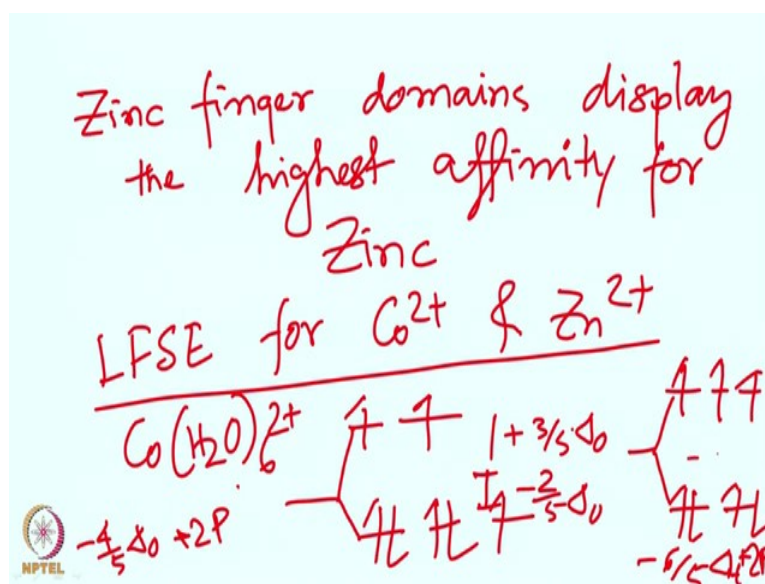 Zinc finger domains display
the highest affinity for
Zinc
LFSE for Co2+ & Zn2+
Co(H2O)6 2+
+3/5 Δo
-2/5 Δo
-4/5 Δo +2P
-6/5 Δt
NPTEL